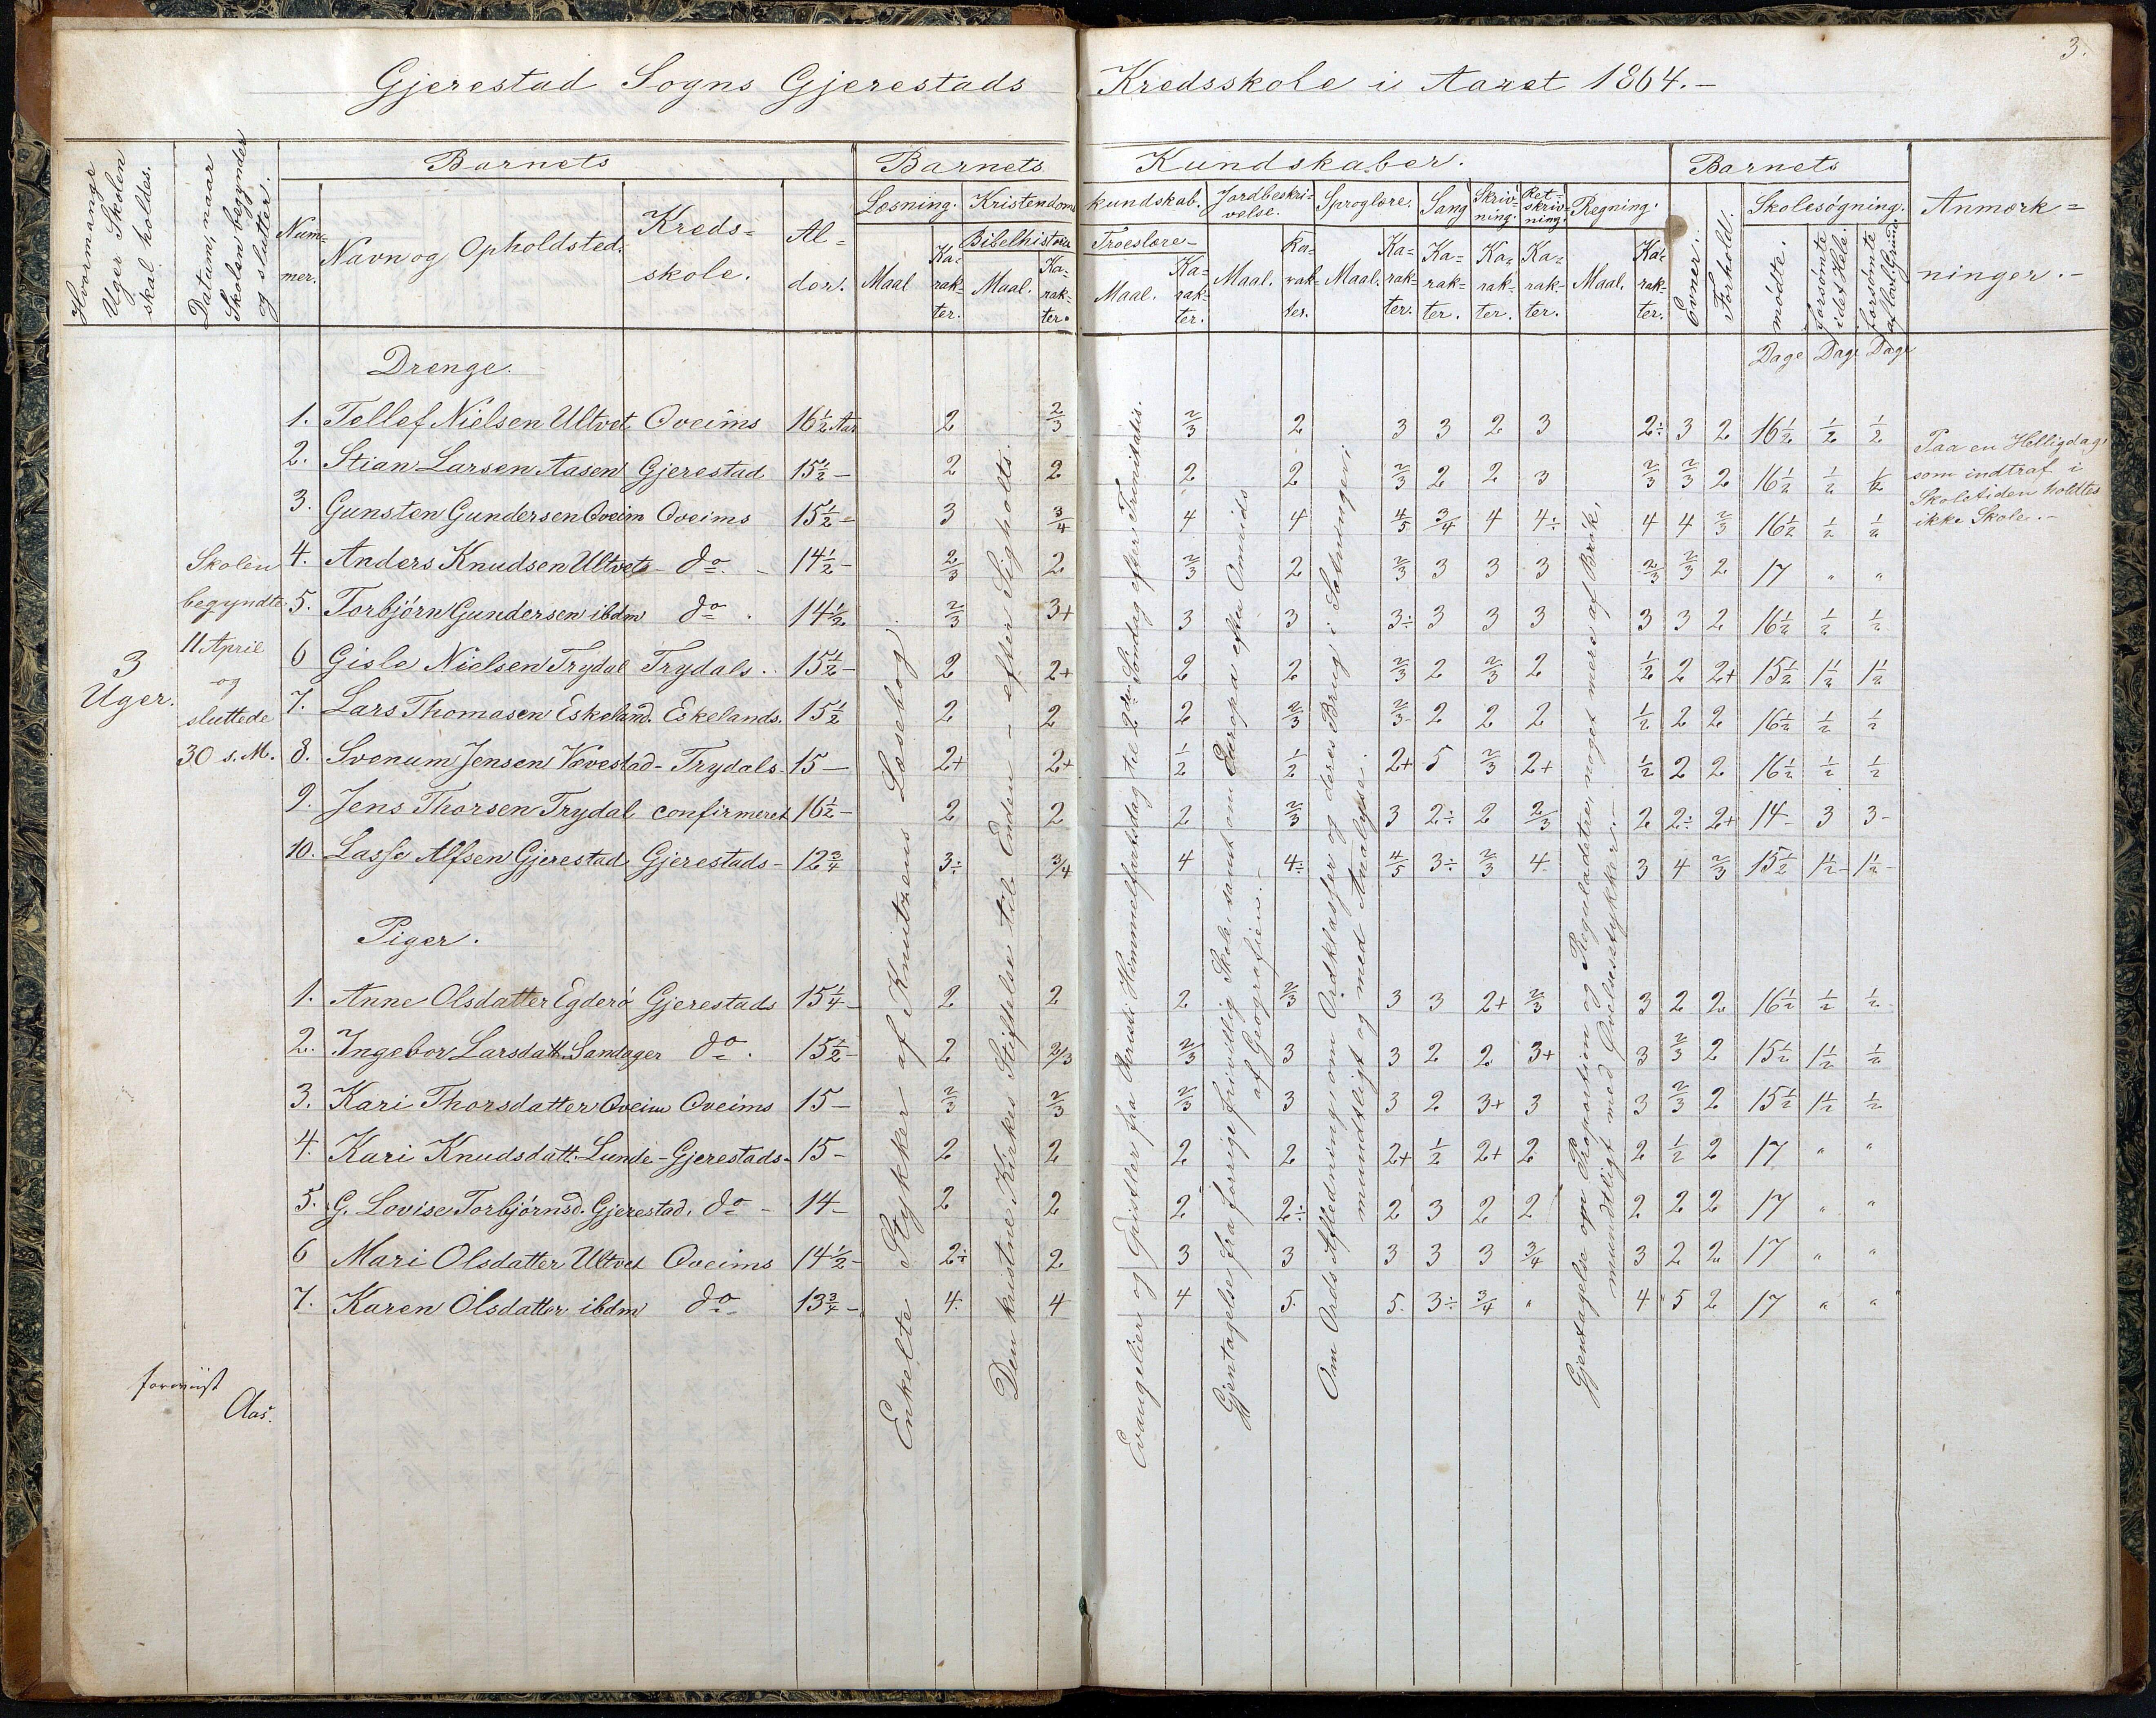 3.
Gjerestad Sogns Gjerestads Kredsskole i Aaret 1864.-
Hvormange Uger Skolen skal holdes.
Datum, naar Skolen begynder og slutter.
Barnets
Nummer.
Navn og Opholdsted.
Kreds=skole.
Al=der.
Barnets Kundskaber.
Læsning. Maal Ka=rak=ter.
Kristendomskundskab.
Bibelhistorie Maal. Ka=rak=ter.
Troeslære- Maal. Ka=rak=ter.
Jordbeskri=velse. Maal. Ka=rak=ter.
Sproglære. Maal. Ka=rak=ter.
Sang Ka=rak=ter.
Skriv=ning. Ka=rak=ter.
Ret=skriv=ning. Ka=rak=ter.
Regning. Maal. Ka=rak=ter.
Barnets
Evner.
Forhold.
Skolesøgning.
mødte. forsømte idethele. forsømte af lovl. Grund.
Anmærk=ninger.-
Dage Dage Dage
3 Uger.
Skolen
begyndte
11 April
og
sluttede
30 s. M.
Drenge.
1. Tellef Nielsen Ultvet Oveims 16½ Aar 2 2/3 2/3 2 3 3 2 3 2÷ 3 2 16½ ½ ½
2. Stian Larsen Aasen Gjerestad 15½ - 2 2 2 2 2/3 2 2 3 2/3 2/3 2 16½ ½ ½
3. Gunsten Gundersen Oveim Oveims 15½ - 3 3/4 4 4 4/5 3/4 4 4÷ 4 4 2/3 16½ ½ ½
4. Anders Knudsen Ultvet - do - 14½ - 2/3 2 2/3 2 2/3 3 3 3 2/3 2/3 2 17 " "
5. Torbjørn Gundersen ibdm do . 14½ 2/3 3+ 3 3 3÷ 3 3 3 3 3 2 16½ ½ ½
6 Gisle Nielsen Trydal Trydals . 15½ - 2 2+ 2 2 2/3 2 2/3 2 ½ 2 2+ 15½ 1½ 1½
7. Lars Thomasen Eskeland. Eskelands. 15½ 2 2 2 2/3 2/3 2 2 2 ½ 2 2 16½ ½ ½
8. Svenum Jensen Vevestad - Trydals - 15 - 2+ 2+ ½ ½ 2+ 5 2/3 2+ ½ 2 2 16½ ½ ½
9. Jens Thorsen Trydal confirmeret 16½ - 2 2 2 2/3 3 2÷ 2 2/3 2 2÷ 2+ 14- 3 3-
10. Lasse Alfsen Gjerestad Gjerestads - 12¾ 3÷ 3/4 4 4÷ 4/5 3÷ 2/3 4- 3 4 2/3 15½ 1½- 1½-
Piger.
1. Anne Olsdatter Egderø Gjerestads 15¼ - 2 2 2 2/3 3 3 2+ 2/3 3 2 2 16½ ½ ½
2. Ingebor Larsdatt. Sandager do . 15½ - 2 2/3 2/3 3 3 2 2 3+ 3 2/3 2 15½ 1½ ½
3. Kari Thorsdatter Oveim Oveims 15 - 2/3 2/3 2/3 3 3 2 3+ 3 3 2/3 2 15½ 1½ ½
4. Kari Knudsdatt. Lunde - Gjerestads - 15 - 2 2 2 2 2+ ½ 2+ 2 2 ½ 2 17 " "
5. G. Lovise Torbjørnsd. Gjerestad. do - 14 - 2 2 2 2÷ 2 3 2 2 2 2 2 17 " "
6 Mari Olsdatter Ultvet Oveims 14½ - 2÷ 2 3 3 3 3 3 3/4 3 2 2 17 " "
7. Karen Olsdatter ibdm do 13¾ - 4. 4 4 5. 5. 3÷ 3/4 " 4 5 2 17 " "
Enkelte Stykker af Knutzens Læsebog
Den kristne Kirkes Stiftelse til Enden - efter Sigholts
Evangelier og Epistler fra Kristi Himmelfartsdag til 2den Søndag efter Trinitatis.
Gjentagelse fra forrige frivillig Skole, samt om Europa efter Omrids
af Geografien.-
Om Ords Afledning, om Ordklasser og deres Brug i Sætninger
mundtligt og med Analyse.
Gjentagelse om Proportion og Reguladetri, noget mere af Brøk,
mundtligt med Øvelsesstykker.-
Paa en Helligdag,
som indtraf i
Skoletiden holdtes
ikke Skole.-
foreviist
Aas.